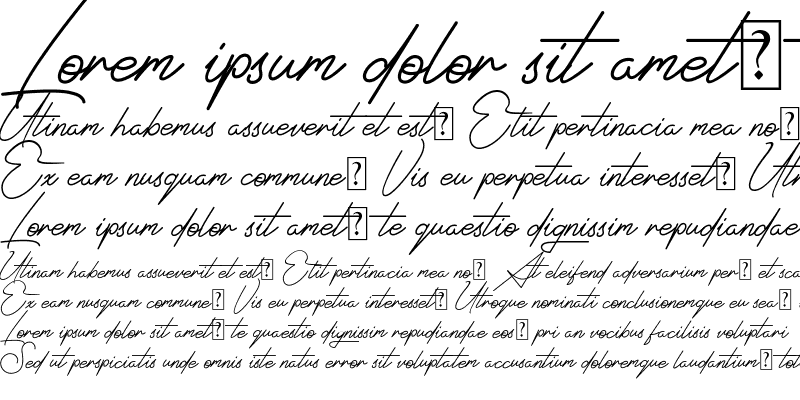 Lorem ipsum dolor sit amet?
Utinam habemus assueverit et est? Elit pertinacia mea no?
Ex eam nusquam commune? Vis eu perpetua interesset? Utr
Lorem ipsum dolor sit amet? te quaestio dignissim repudiandae
Utinam habemus assueverit et est? Elit pertinacia mea no? At eleifend adversarium per? et sca
Ex eam nusquam commune? Vis eu perpetua interesset? Utroque nominati conclusionemque eu sea?
Lorem ipsum dolor sit amet? te quaestio dignissim repudiandae eos? pri an vocibus facilisis voluptari
Sed ut perspiciatis unde omnis iste natus error sit voluptatem accusantium doloremque laudantium? tot